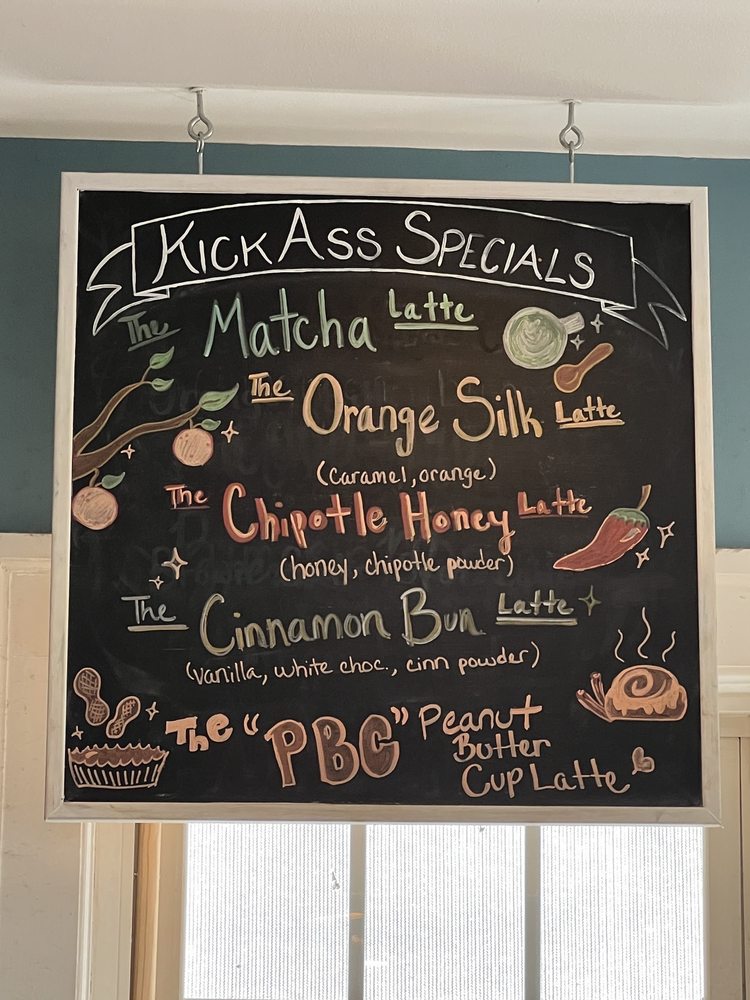 KICKASS SPECIALS
The Matcha Latte
The Orange Silk Latte
(Caramel, orange)
The Chipotle Honey Latte
(honey, chipotle powder)
The Cinnamon Bun Latte
(vanilla, white choc., cinn powder)
The "PBC" Peanut
Butter
Cup Latte